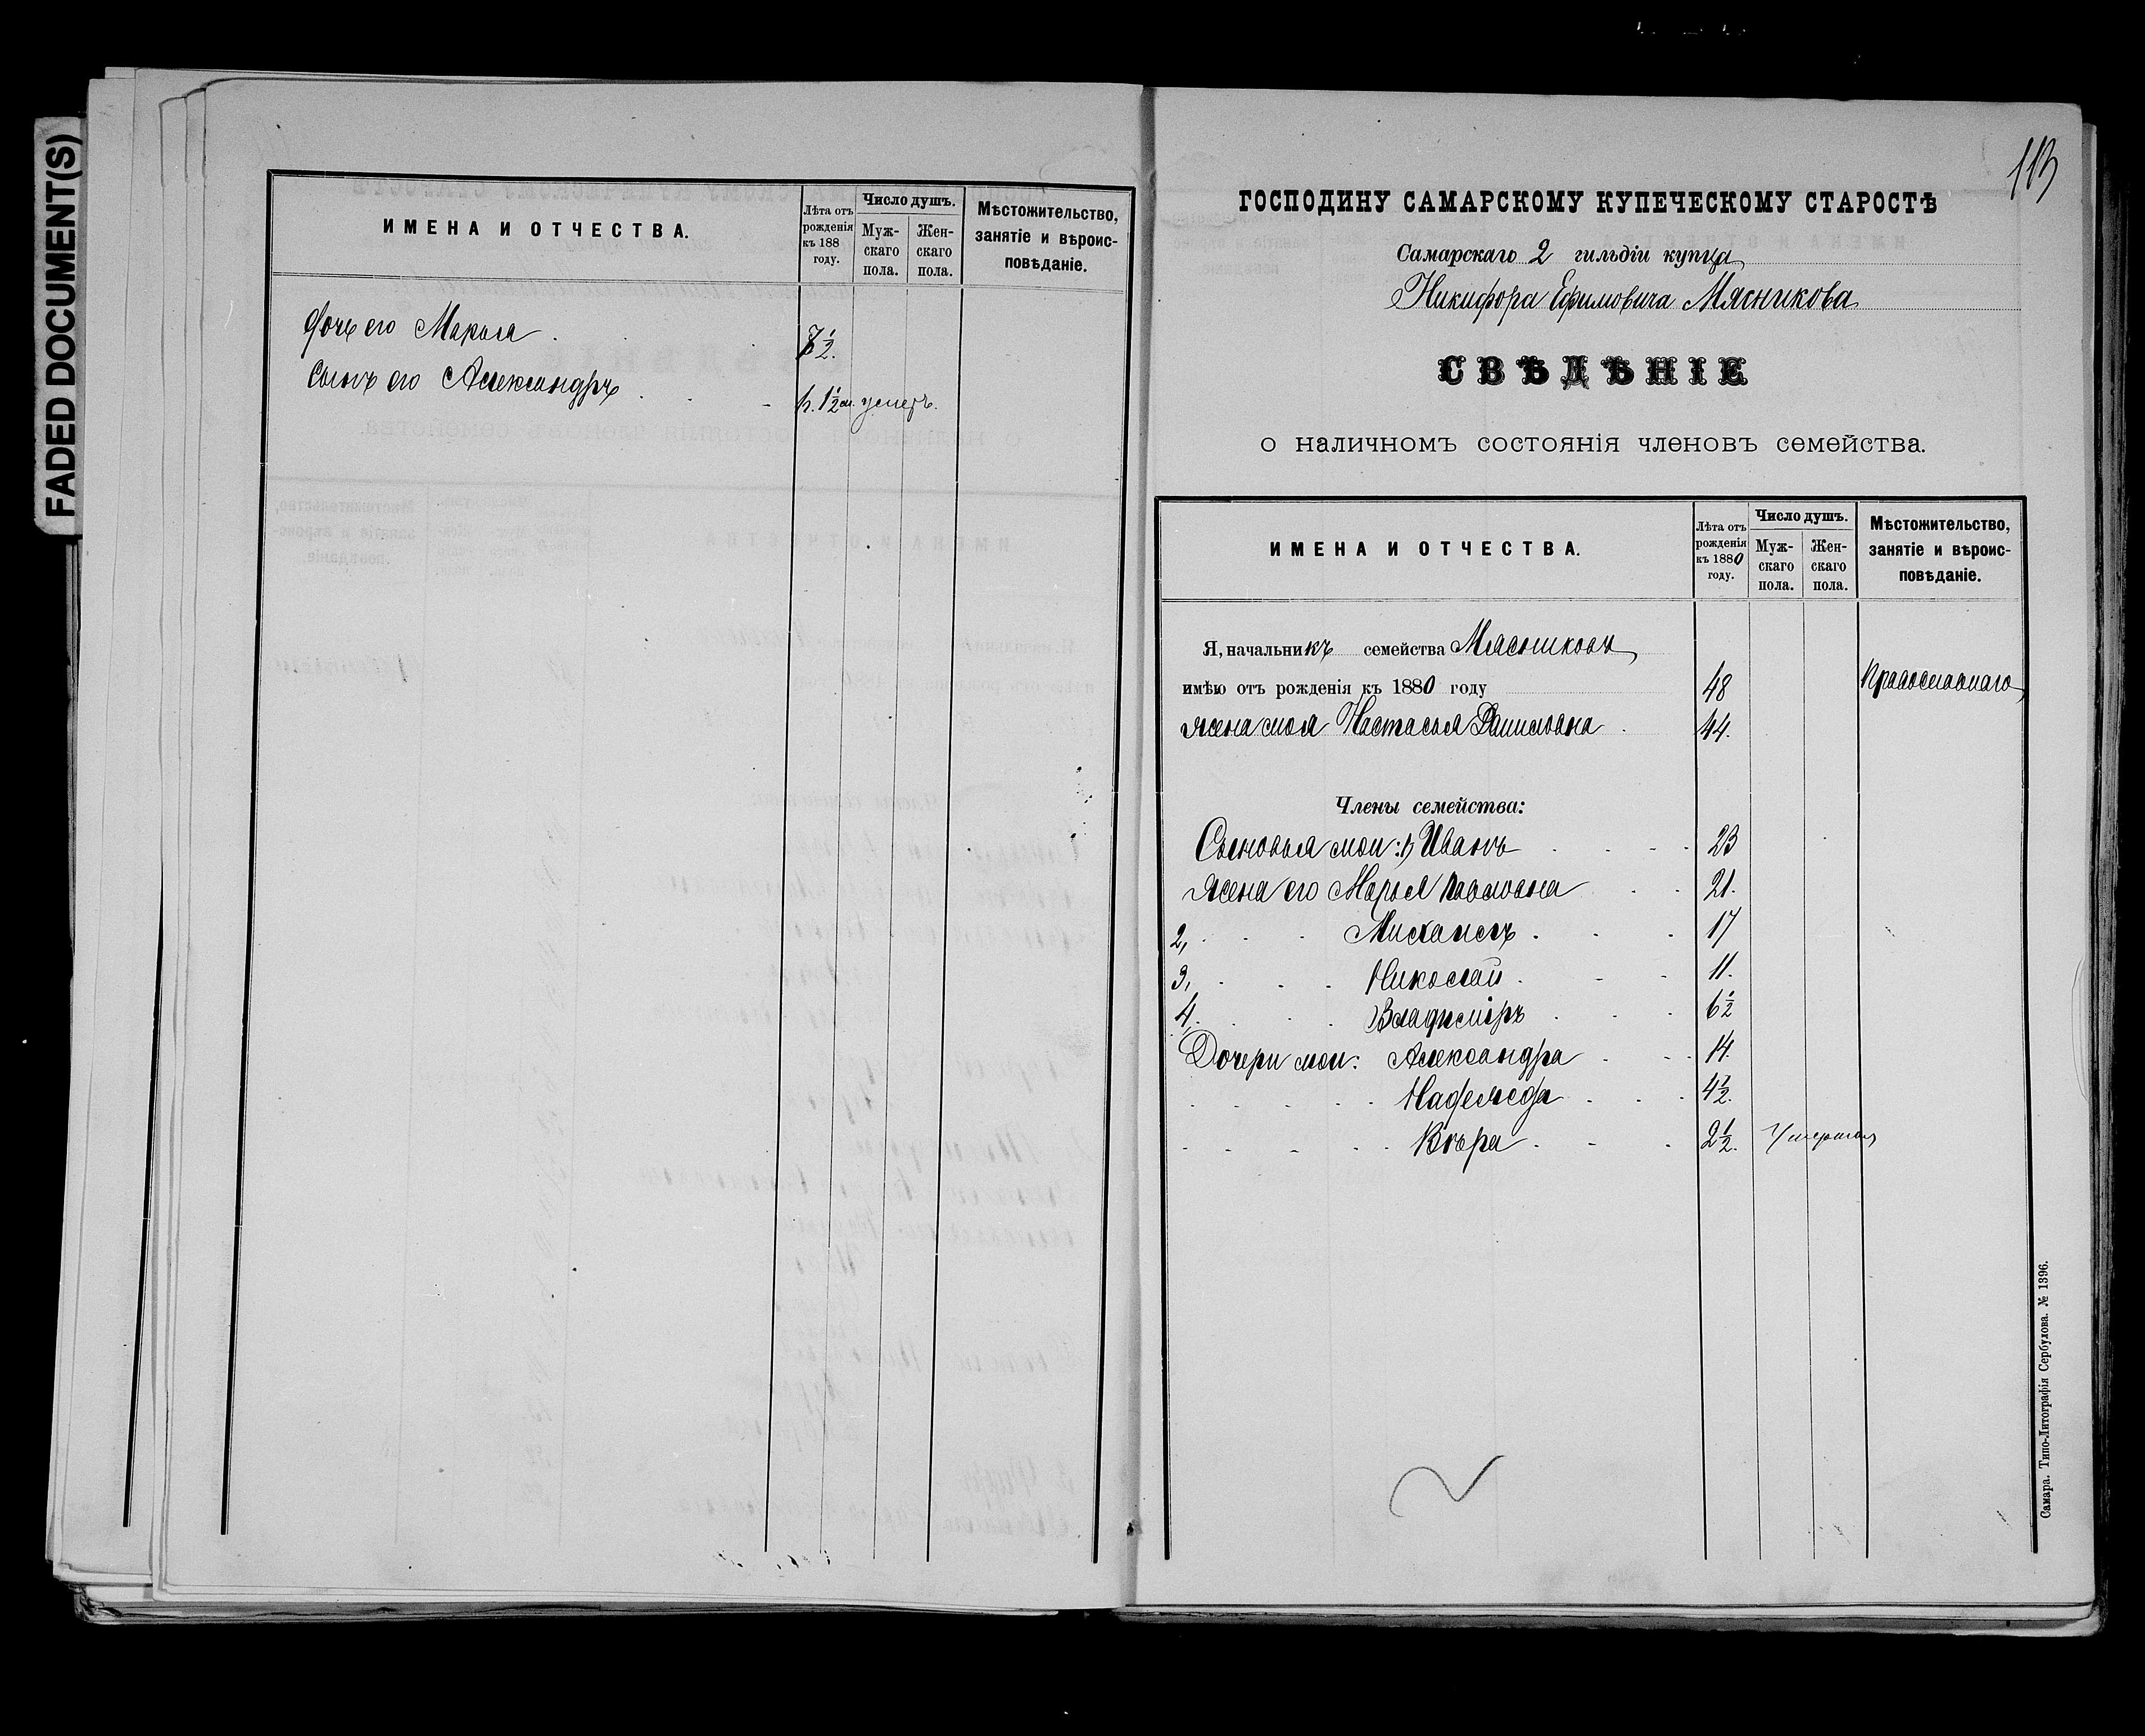 FADED DOCUMENT(S)
ИМЕНА И ОТЧЕСТВА.
Лѣта отъ рожденія къ 188 году.
Число душъ.
Мужскаго пола.
Женскаго пола.
Мѣстожительство, занятіе и вѣроисповѣданіе.
Дочь его Марья
Сынъ его Александръ умеръ.
113
ГОСПОДИНУ САМАРСКОМУ КУПЕЧЕСКОМУ СТАРОСТѢ
Самарскаго 2 гильдіи купца
Никифора Ефимовича Мясникова
СВѢДѢНІЕ
о наличномъ состоянія членовъ семейства.
ИМЕНА И ОТЧЕСТВА.
Лѣта отъ рожденія къ 1880 году.
Число душъ.
Мужскаго пола.
Женскаго пола.
Мѣстожительство, занятіе и вѣроисповѣданіе.
Я, начальникъ семейства Мясниковъ
имѣю отъ рожденія къ 1880 году 48 Православнаго
жена моя Настасья 44.
Члены семейства:
Сыновья мои: 1, Иванъ 23
Жена его Марья Павловна 21.
2, Михаилъ 17
3, Николай 11.
4, Владиміръ 6½
Дочери мои: Александра 14.
Надежда 4½.
Вѣра 2½. Умерла
Самара. Типо-Литографія Сербулова. № 1396.